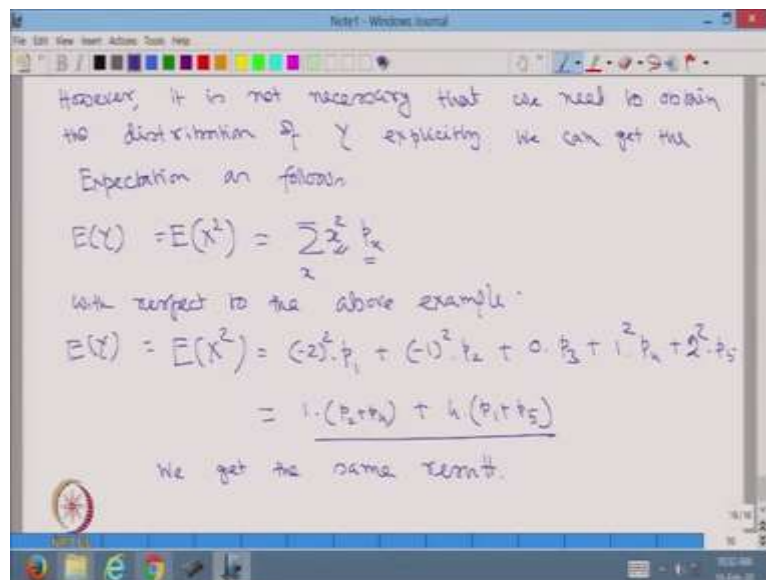 Note1 - Windows Journal
File Edit View Insert Actions Tools Help
However, it is not necessary that we need to obtain
the distribution of Y explicitly we can get the
Expectation as follows
E(Y) = E(X²) = Σ x² pₓ
x
with respect to the above example.
E(Y) = E(X²) = (-2)².p₁ + (-1)².p₂ + 0.p₃ + 1².p₄ + 2².p₅
= 1.(p₂+p₄) + 4.(p₁+p₅)
We get the same result.